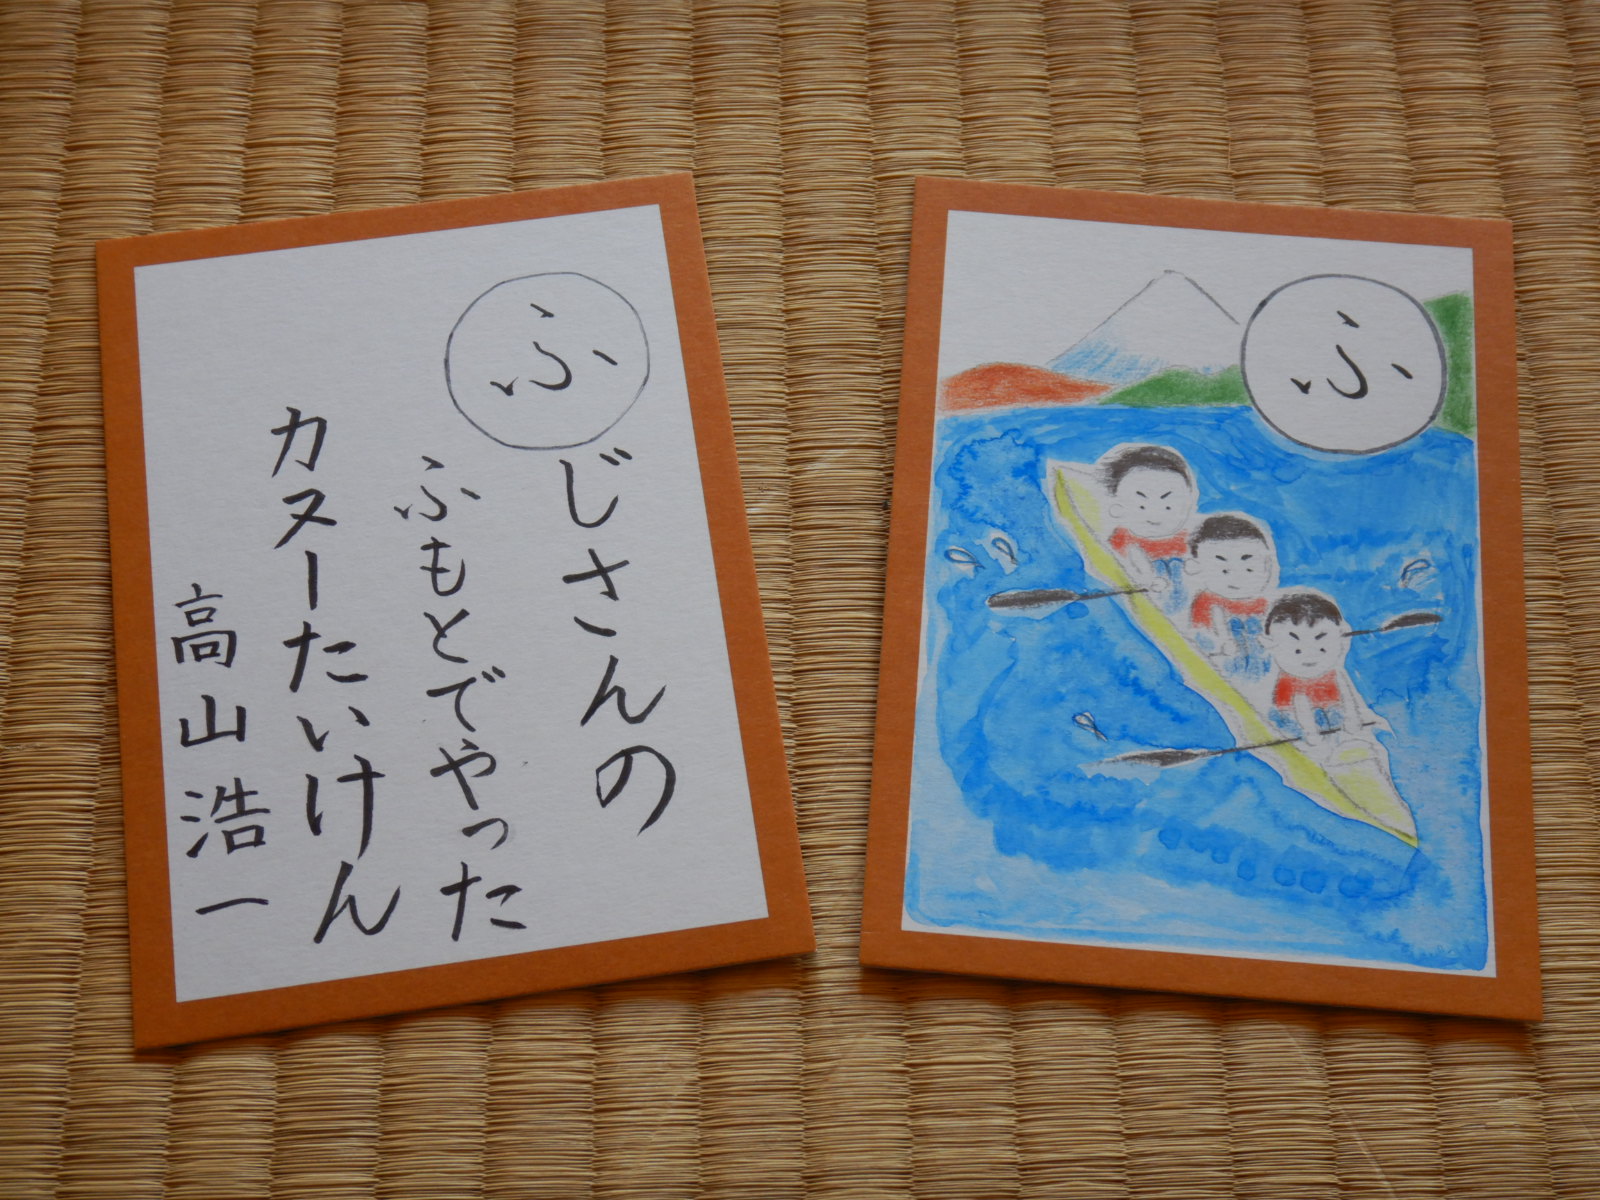 ふじさんの
ふもとでやった
カヌーたいけん
高山浩一
ふ